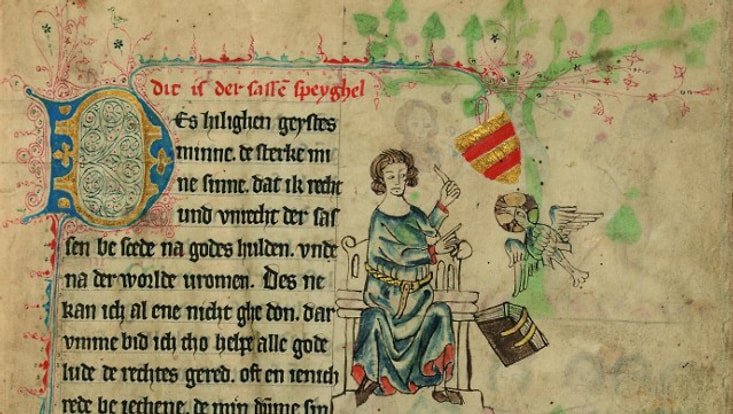 dit is der sassē speyghel
Des hilighen geystes
minne. de sterke mi
ne sinne. dat ik recht
und vnrecht der sas
sen be scede na godes hulden. vnde
na der worlde vromen. Des ne
kan ich al ene nicht ghe don. dar
vmme bid ich tho helpe alle gode
lude de rechtes gered. oft en ienich
rede be ieghene. de min dūme sin